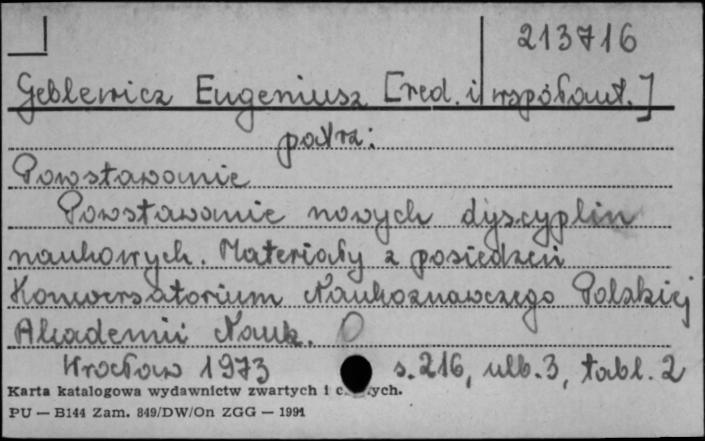 213716
Geblewicz Eugeniusz [red. i współaut.]
patrz:
Powstawanie
Powstawanie nowych dyscyplin
naukowych. Materiały z posiedzeń
Konwersatorium Naukoznawczego Polskiej
Akademii Nauk.
Wrocław 1973 s. 216, ulb. 3, tabl. 2
Karta katalogowa wydawnictw zwartych i
PU — B144 Zam. 849/DW/On ZGG — 1991